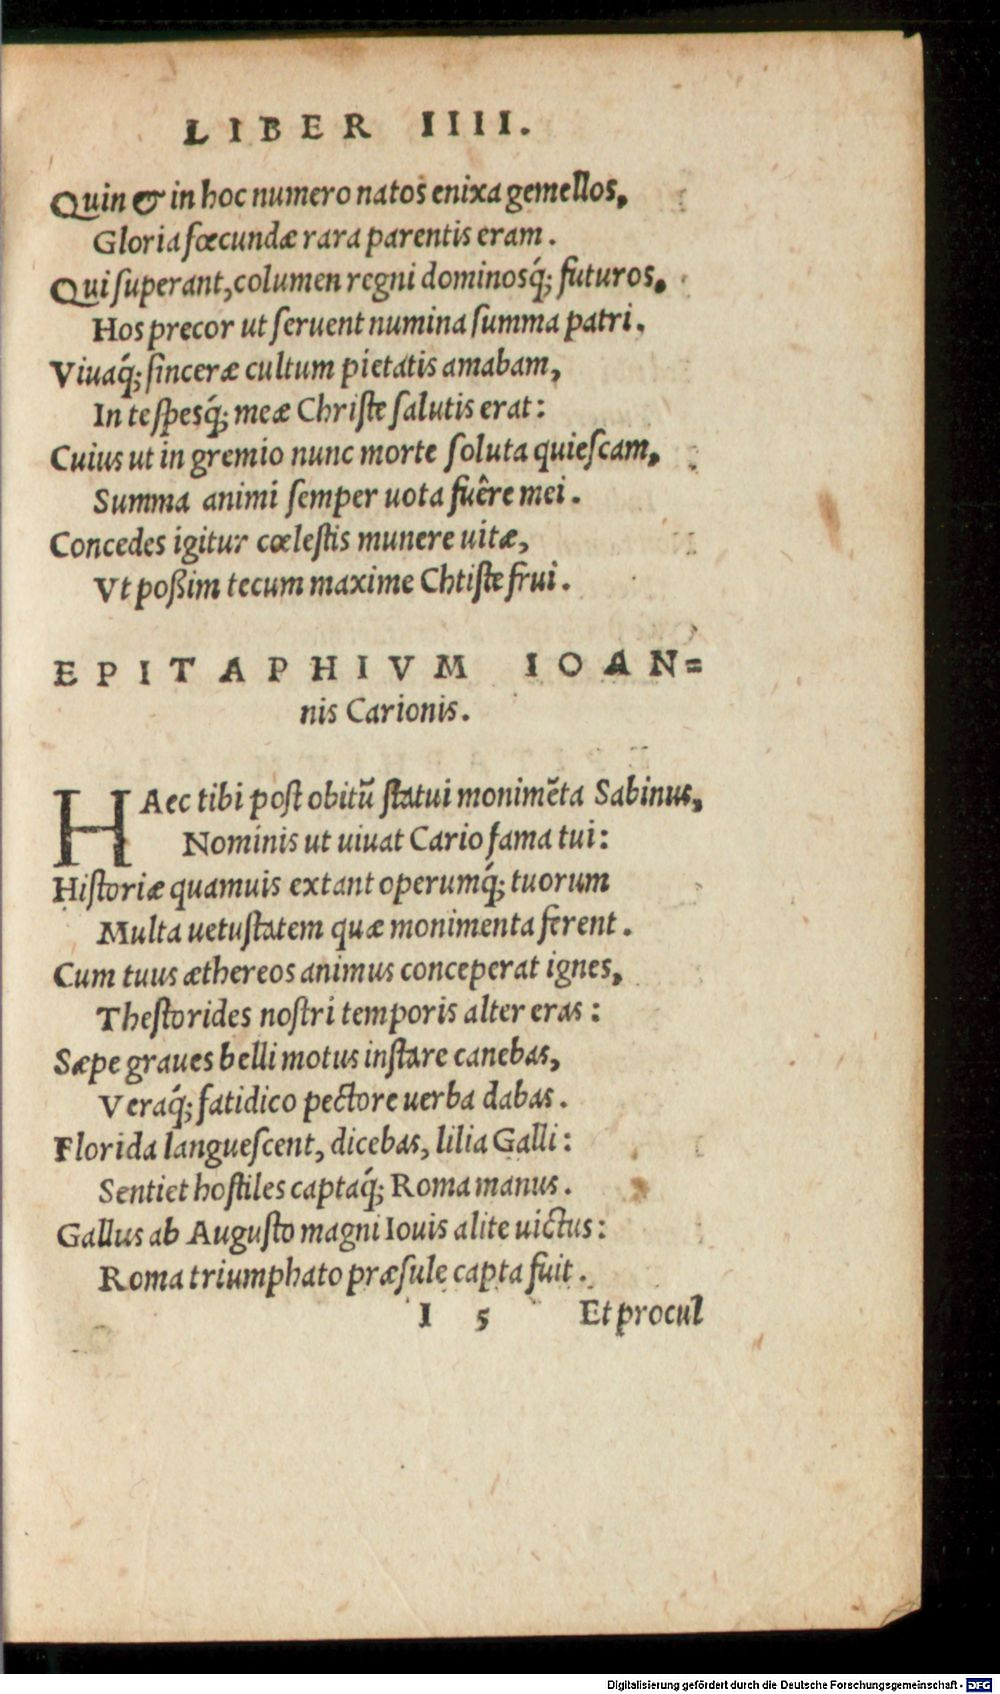 LIBER IIII.
Quin & in hoc numero natos enixa gemellos,
Gloria fœcundæ rara parentis eram.
Qui superant, columen regni dominosq́; futuros,
Hos precor ut seruent numina summa patri.
Viuaq́; sinceræ cultum pietatis amabam,
In te spesq́; meæ Christe salutis erat:
Cuius ut in gremio nunc morte soluta quiescam,
Summa animi semper uota fuêre mei.
Concedes igitur cœlestis munere uitæ,
Vt poßim tecum maxime Chtiste frui.
EPITAPHIVM IOAN=
nis Carionis.
HAec tibi post obitũ statui monimẽta Sabinus,
Nominis ut uiuat Cario fama tui:
Historiæ quamuis extant operumq́; tuorum
Multa uetustatem quæ monimenta ferent.
Cum tuus æthereos animus conceperat ignes,
Thestorides nostri temporis alter eras:
Sæpe graues belli motus instare canebas,
Veraq́; fatidico pectore uerba dabas.
Florida languescent, dicebas, lilia Galli:
Sentiet hostiles captaq́; Roma manus.
Gallus ab Augusto magni Iouis alite uictus:
Roma triumphato præsule capta fuit.
I 5 Et procul
Digitalisierung gefördert durch die Deutsche Forschungsgemeinschaft - DFG